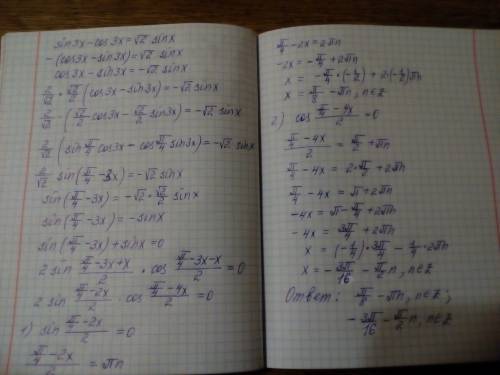 sin3x-cos3x=√2 sinx
-(cos3x-sin3x)=√2 sinx
cos3x-sin3x=-√2 sinx
2/√2 · √2/2 (cos3x-sin3x)=-√2 sinx
2/√2 · (√2/2 cos3x-√2/2 sin3x)=-√2 sinx
2/√2 (sin π/4 cos3x-cos π/4 sin3x)=-√2 sinx
2/√2 sin(π/4-3x)=-√2 sinx
sin(π/4-3x)=-√2·√2/2 sinx
sin(π/4-3x)=-sinx
sin(π/4-3x)+sinx=0
2 sin (π/4-3x+x)/2 · cos (π/4-3x-x)/2 =0
2 sin (π/4-2x)/2 · cos (π/4-4x)/2 =0
1) sin (π/4-2x)/2 =0
(π/4-2x)/2 =πn
π/4-2x=2πn
-2x=-π/4+2πn
x=-π/4·(-1/2)+2·(-1/2)πn
x=π/8-πn, n∈Z
2) cos (π/4-4x)/2 =0
(π/4-4x)/2 =π/2+πn
π/4-4x=2·π/2+2πn
π/4-4x=π+2πn
-4x=π-π/4+2πn
-4x=3π/4+2πn
x=(-1/4)·3π/4-1/4·2πn
x=-3π/16-π/2n, n∈Z
Ответ: π/8-πn, n∈Z;
-3π/16-π/2n, n∈Z